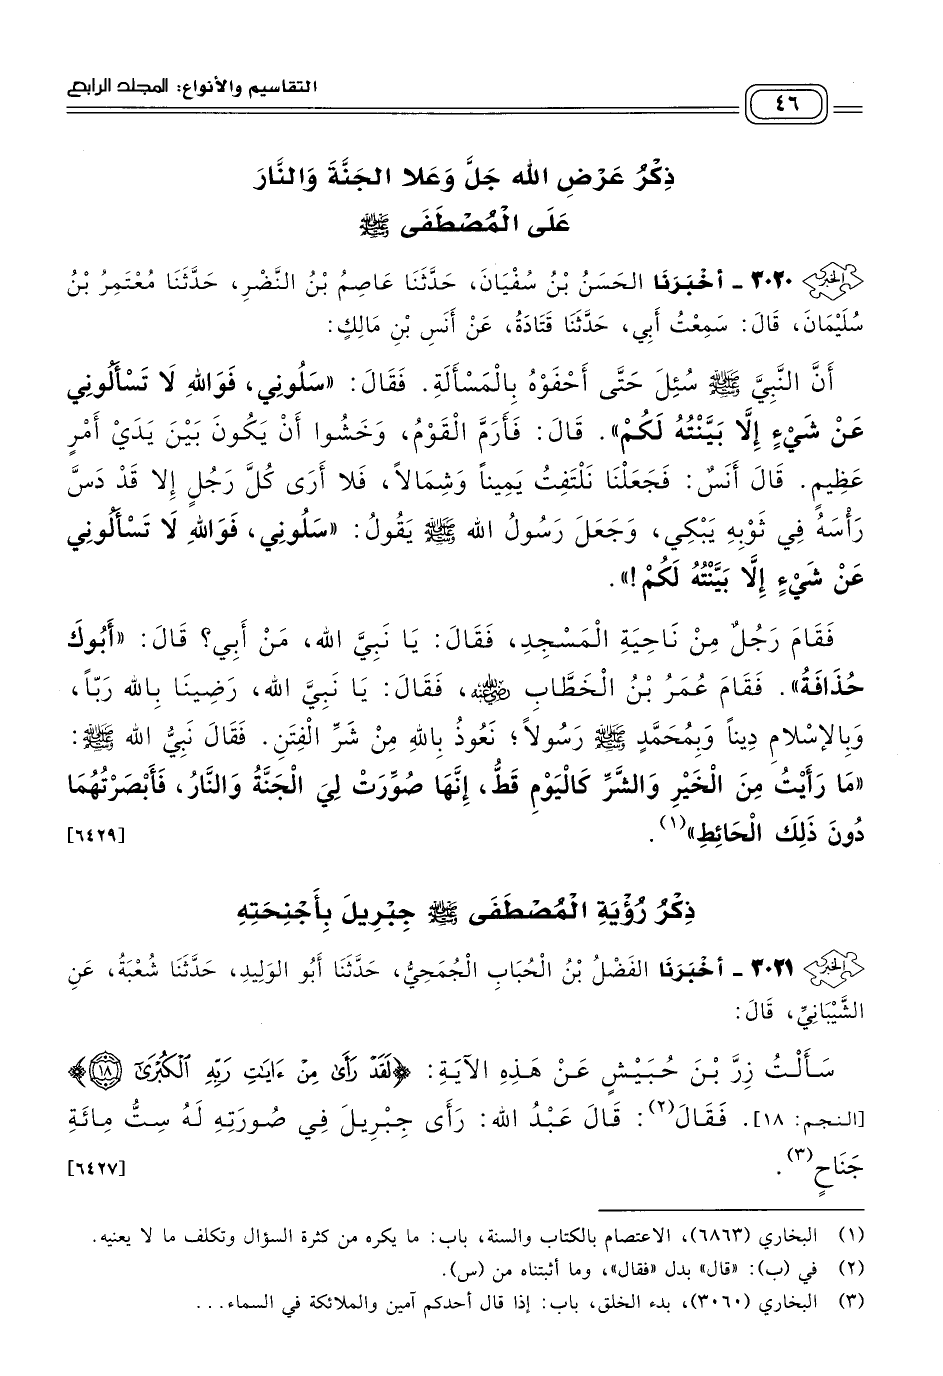 التقاسيم والأنواع: المجلد الرابع
٤٦
ذِكْرُ عَرْضِ الله جَلَّ وَعَلا الجَنَّةَ وَالنَّارَ
عَلَى الْمُصْطَفَى ﷺ
٣٠٢٠ - أَخْبَرَنَا الحَسَنُ بْنُ سُفْيَانَ، حَدَّثَنَا عَاصِمُ بْنُ النَّضْرِ، حَدَّثَنَا مُعْتَمِرُ بْنُ
سُلَيْمَانَ، قَالَ: سَمِعْتُ أَبِي، حَدَّثَنَا قَتَادَةُ، عَنْ أَنَسِ بْنِ مَالِكٍ:
أَنَّ النَّبِيَّ ﷺ سُئِلَ حَتَّى أَحْفَوْهُ بِالْمَسْأَلَةِ. فَقَالَ: «سَلُونِي، فَوَاللهِ لَا تَسْأَلُونِي
عَنْ شَيْءٍ إِلَّا بَيَّنْتُهُ لَكُمْ». قَالَ: فَأَرَمَّ الْقَوْمُ، وَخَشُوا أَنْ يَكُونَ بَيْنَ يَدَيْ أَمْرٍ
عَظِيمٍ. قَالَ أَنَسٌ: فَجَعَلْنَا نَلْتَفِتُ يَمِيناً وَشِمَالاً، فَلا أَرَى كُلَّ رَجُلٍ إِلا قَدْ دَسَّ
رَأْسَهُ فِي ثَوْبِهِ يَبْكِي، وَجَعَلَ رَسُولُ الله ﷺ يَقُولُ: «سَلُونِي، فَوَاللهِ لَا تَسْأَلُونِي
عَنْ شَيْءٍ إِلَّا بَيَّنْتُهُ لَكُمْ!».
فَقَامَ رَجُلٌ مِنْ نَاحِيَةِ الْمَسْجِدِ، فَقَالَ: يَا نَبِيَّ الله، مَنْ أَبِي؟ قَالَ: «أَبُوكَ
حُذَافَةُ». فَقَامَ عُمَرُ بْنُ الْخَطَّابِ رضي الله عنه، فَقَالَ: يَا نَبِيَّ الله، رَضِينَا بِالله رَبّاً،
وَبِالإسْلامِ دِيناً وَبِمُحَمَّدٍ ﷺ رَسُولاً؛ نَعُوذُ بِاللهِ مِنْ شَرِّ الْفِتَنِ. فَقَالَ نَبِيُّ الله ﷺ:
«مَا رَأَيْتُ مِنَ الْخَيْرِ وَالشَّرِّ كَالْيَوْمِ قَطُّ، إِنَّهَا صُوِّرَتْ لِيَ الْجَنَّةُ وَالنَّارُ، فَأَبْصَرْتُهُمَا
دُونَ ذَلِكَ الْحَائِطِ»(١). [٦٤٢٩]
ذِكْرُ رُؤْيَةِ الْمُصْطَفَى ﷺ جِبْرِيلَ بِأَجْنِحَتِهِ
٣٠٢١ - أَخْبَرَنَا الفَضْلُ بْنُ الْحُبَابِ الْجُمَحِيُّ، حَدَّثَنَا أَبُو الوَلِيدِ، حَدَّثَنَا شُعْبَةُ، عَنِ
الشَّيْبَانِيِّ، قَالَ:
سَأَلْتُ زِرَّ بْنَ حُبَيْشٍ عَنْ هَذِهِ الآيَةِ: ﴿لَقَدْ رَأَىٰ مِنْ ءَايَٰتِ رَبِّهِ ٱلْكُبْرَىٰٓ ١٨﴾
[النجم: ١٨]. فَقَالَ(٢): قَالَ عَبْدُ الله: رَأَى جِبْرِيلَ فِي صُورَتِهِ لَهُ سِتُّ مِائَةِ
جَنَاحٍ(٣). [٦٤٢٧]
(١) البخاري (٦٨٦٣)، الاعتصام بالكتاب والسنة، باب: ما يكره من كثرة السؤال وتكلف ما لا يعنيه.
(٢) في (ب): «قال» بدل «فقال»، وما أثبتناه من (س).
(٣) البخاري (٣٠٦٠)، بدء الخلق، باب: إذا قال أحدكم آمين والملائكة في السماء...